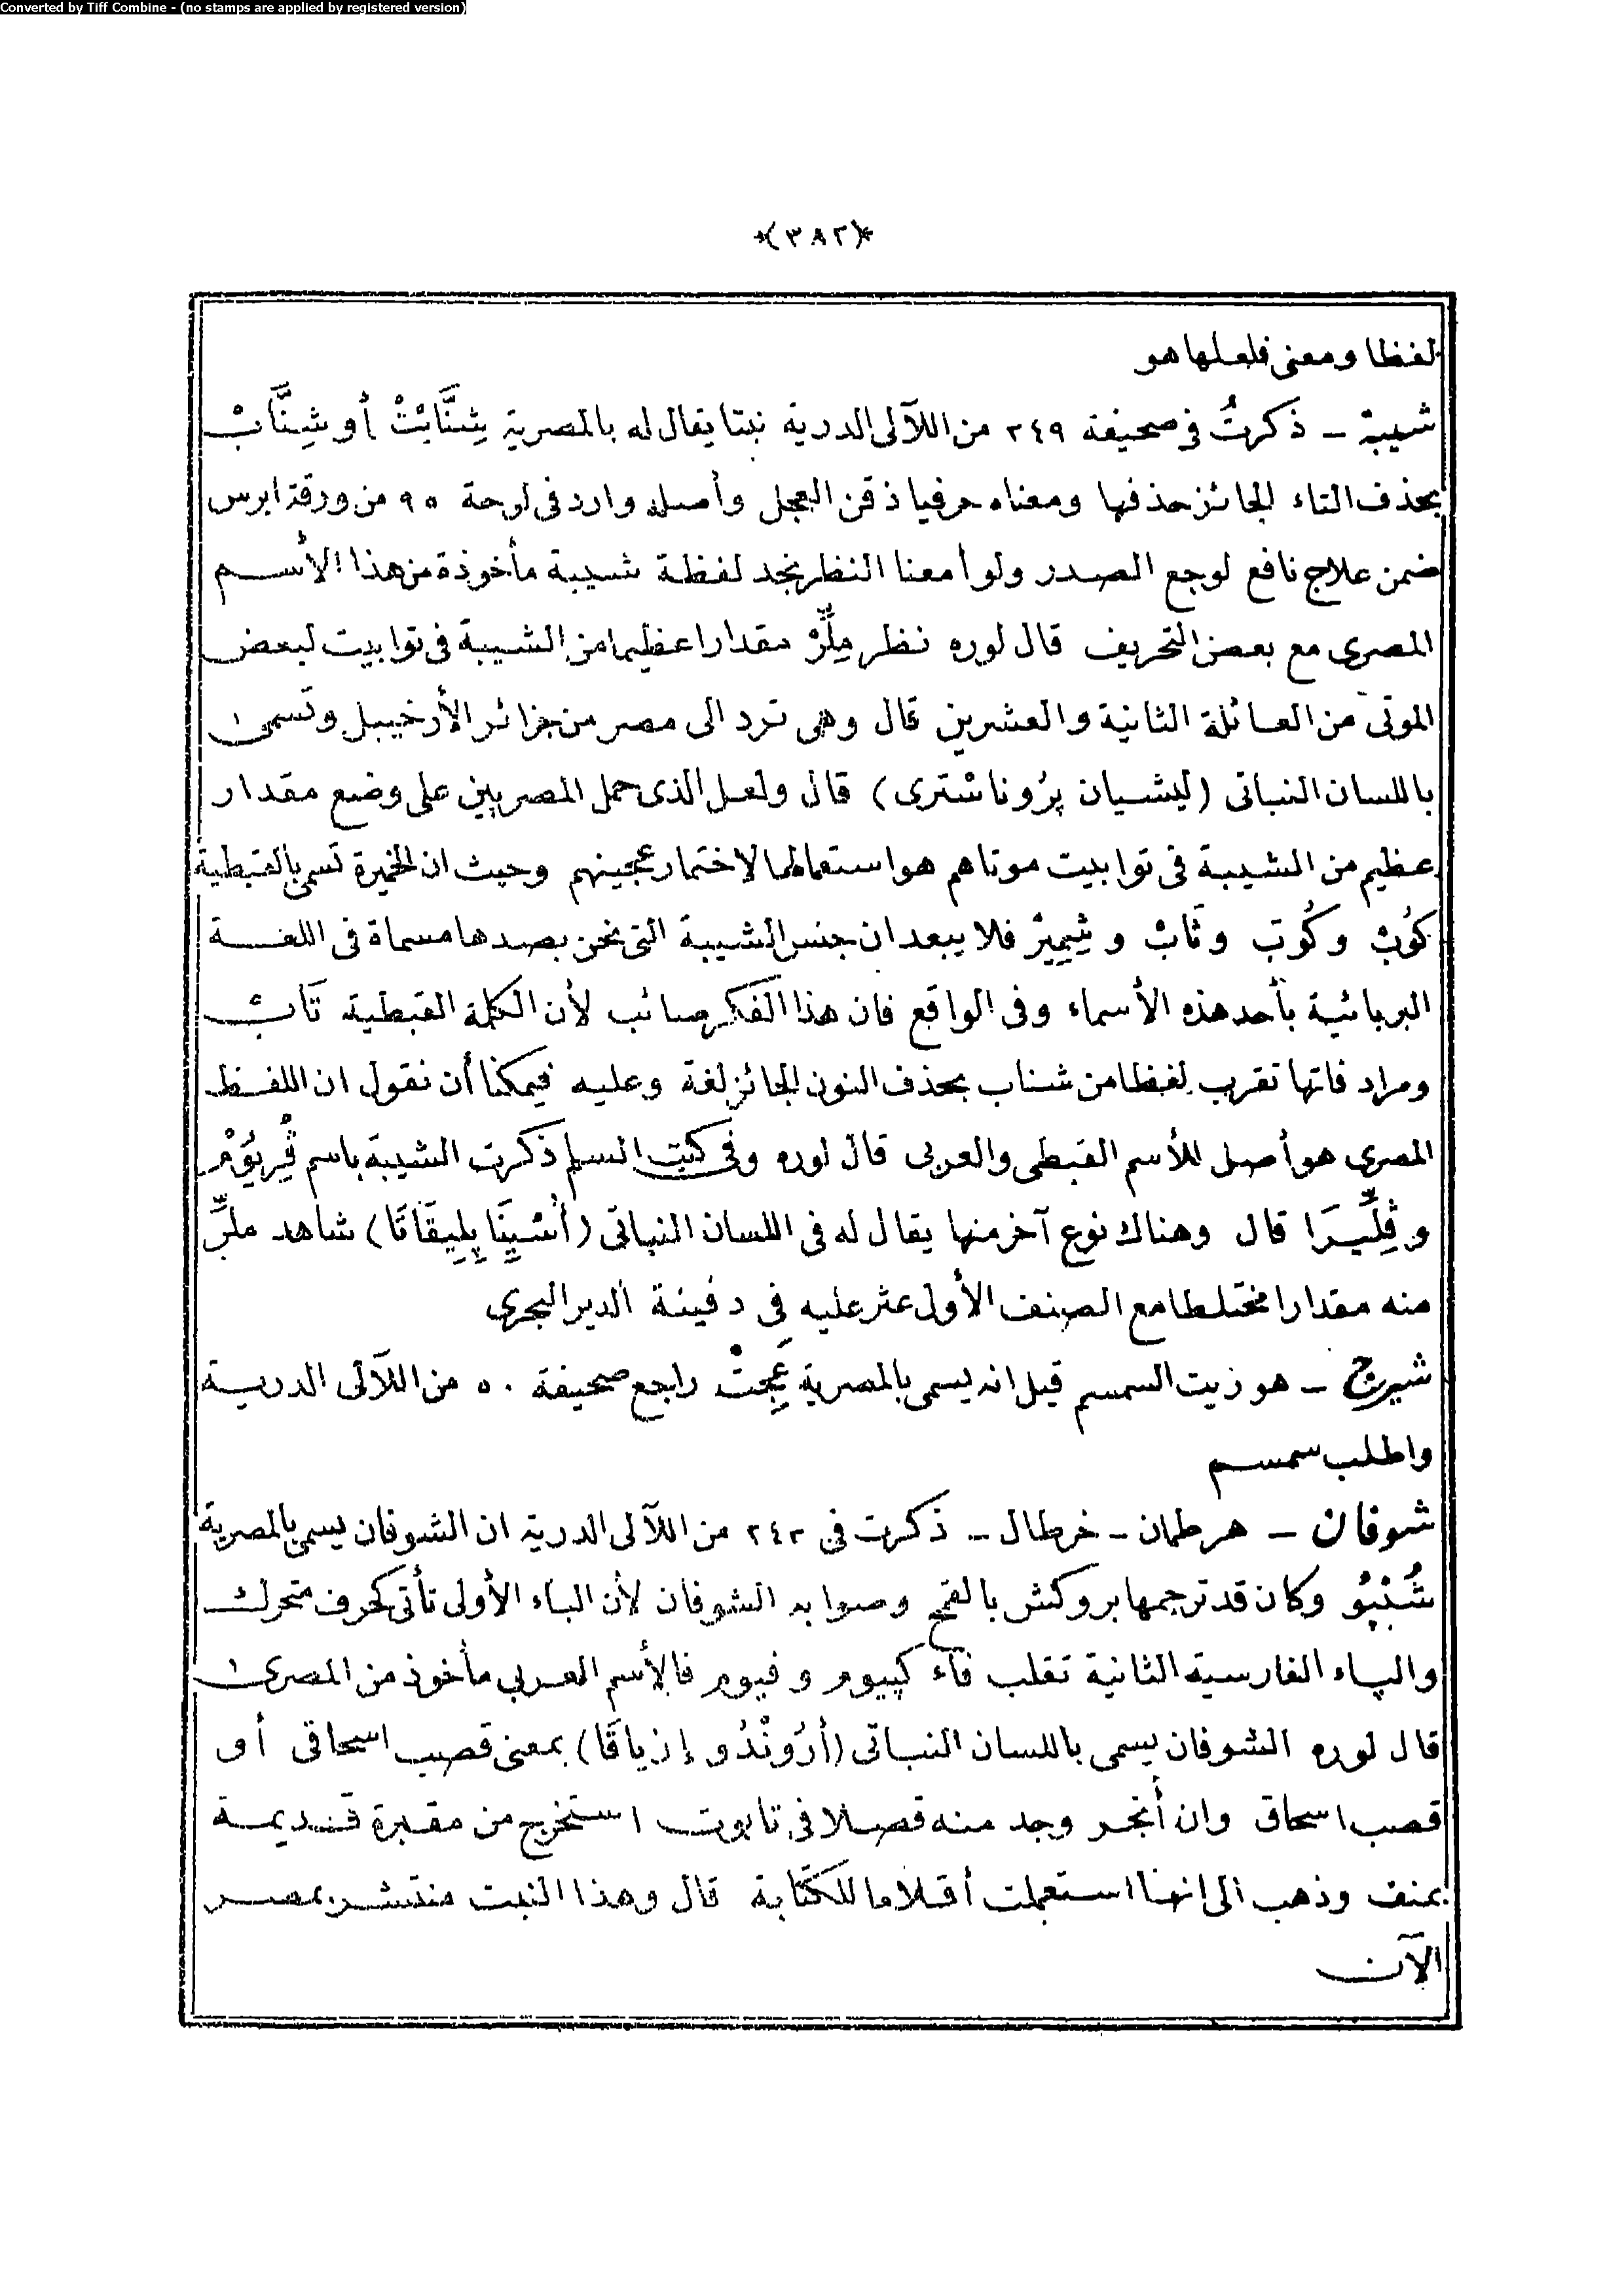 Converted by Tiff Combine - (no stamps are applied by registered version)
*(٣٨٢)*
لفظا ومعنى فلعلها هو
شيبة - ذكرتُ فى صحيفة ٢٤٩ من اللآلى الدرية نبتا يقال له بالمصرية شِنَّابْتْ أو شِنَّابْ
بحذف التاء الجائز حذفها ومعناه حرفيا ذقن العجل وأصله وارد فى لوحة ٩٥ من ورقة ابرس
ضمن علاج نافع لوجع الصدر ولو أمعنا النظر نجد لفظة شيبة مأخوذة من هذا الأسم
المصرى مع بعض التحريف قال لوره نظر مِلِّرْ مقدارا عظيما من الشيبة فى توابيت لبعض
الموتى من العائلة الثانية والعشرين قال وهى ترد الى مصر من جزائر الأرخيبل وتسمى
باللسان النباتى (ليشيان پرُوناسْترى) قال ولعل الذى حمل المصريين على وضع مقدار
عظيم من الشيبة فى توابيت موتاهم هو استعمالها لاختمار عجينهم وحيث ان الخميرة تسمى بالقبطية
كوُبْ وكُوبّ وثابْ و شِمِيرْ فلا يبعد ان جنس الشيبة التى نحن بصددها مسماة فى اللغة
البربائية بأحد هذه الأسماء وفى الواقع فان هذا الفكر صائب لأن الكلمة القبطية ثاب
ومرادفاتها تقرب لفظا من شناب بحذف النون الجائز لغة وعليه فيمكنا أن نقول ان اللفظ
المصرى هو أصل للأسم القبطى والعربى قال لوره وفى كتب السلم ذكرت الشيبة باسم ڤْرِيُومْ
و ڤِلِّيرَا قال وهناك نوع آخر منها يقال له فى اللسان النباتى (أُسْنِينَا پِلِيقَاتَا) شاهد ملرّ
منه مقدارا مختلطا مع الصنف الأول عثر عليه فى دفينة الدير البحرى
شيرج - هو زيت السمسم قيل انه يسمى بالمصرية عِجِتْ راجع صحيفة ٥٠ من اللآلى الدرية
واطلب سمسم
شوفان - هرطمان - خرطال - ذكرت فى ٢٤٢ من اللآلى الدرية ان الشوفان يسمى بالمصرية
شُنْبُو وكان قد ترجمها بروكش بالقمح وصوابه الشوفان لأن الباء الأولى تأتى كحرف متحرك
والپاء الفارسية الثانية تقلب فاء كپيوم وفيوم فالأسم العربى مأخوذ من المصرى
قال لوره الشوفان يسمى باللسان النباتى (أرُونْدُو إزياقَا) بمعنى قصب اسحاقى أو
قصب اسحاق وان أنجر وجد منه قصلا فى تابوت استخرج من مقبرة قديمة
بمنف وذهب الى انها استعملت أقلاما للكتابة قال وهذا النبت منتشر بمصر
الآن